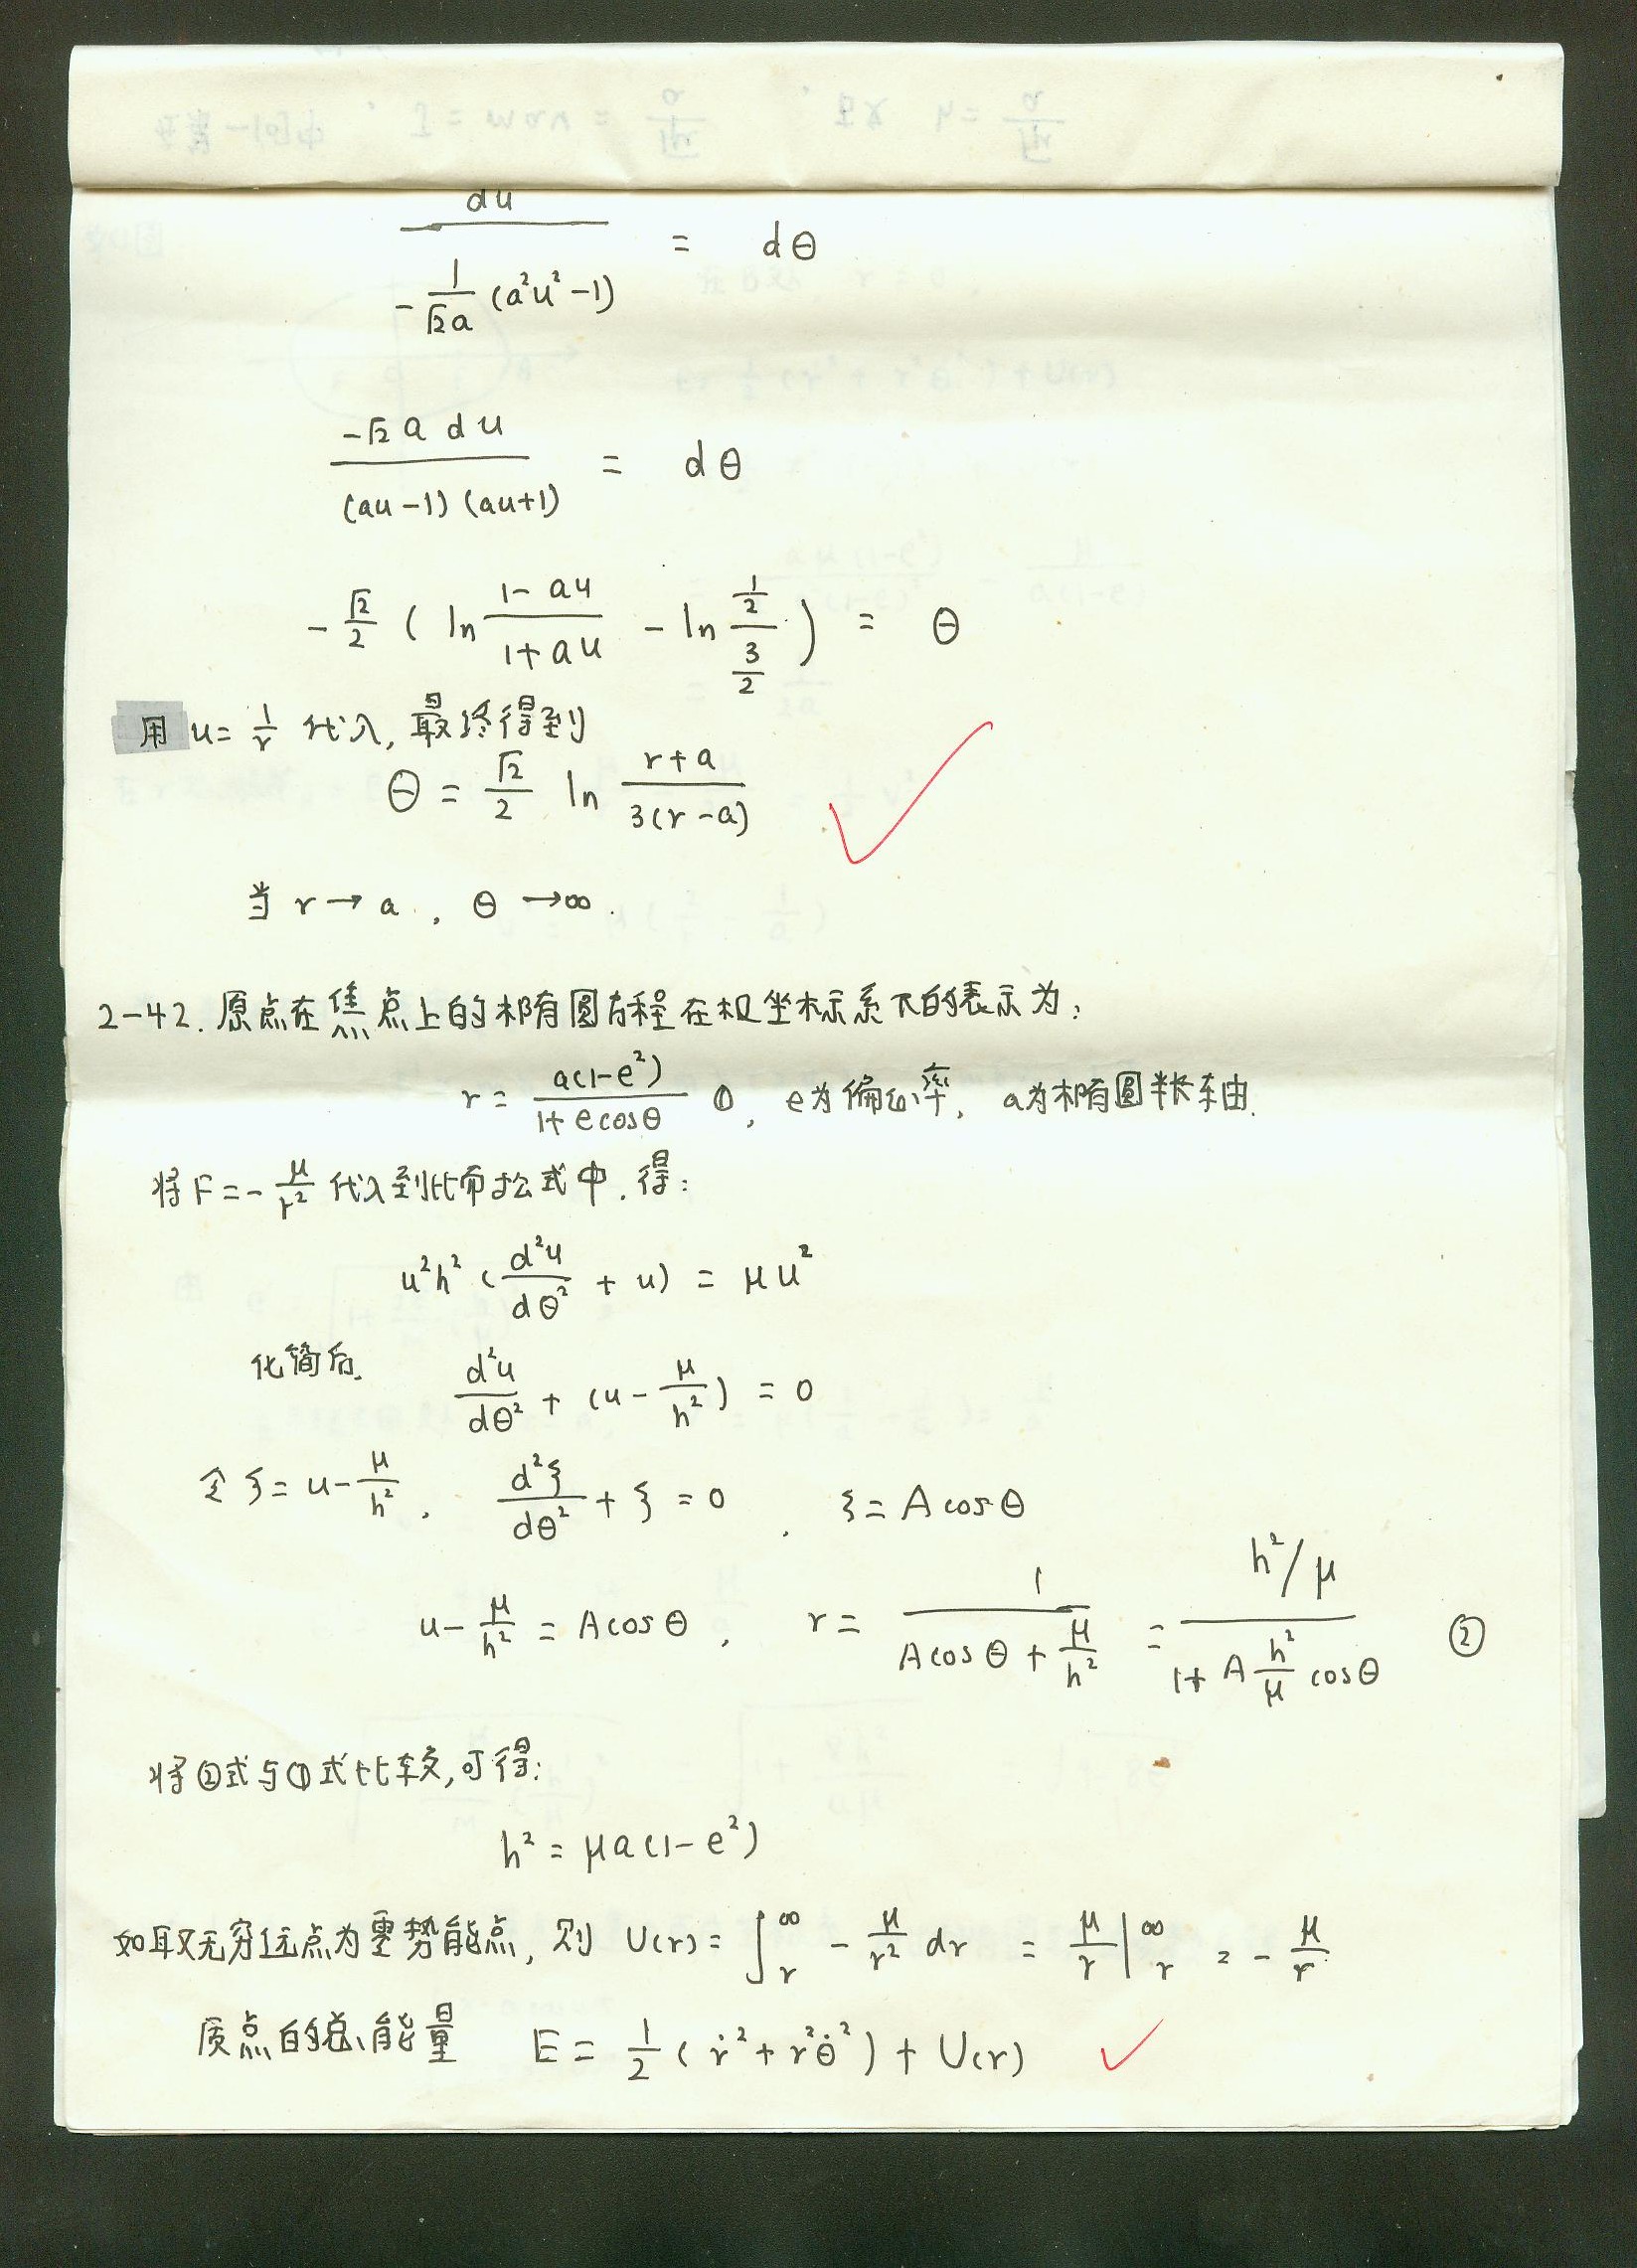 du / (-1/(√2a) (a²u²-1)) = dθ
-√2 a du / ((au-1)(au+1)) = dθ
-√2/2 ( ln (1-au)/(1+au) - ln (1/2)/(3/2) ) = θ
用 u= 1/r 代入, 最终得到
θ = √2/2 ln (r+a)/(3(r-a))
当 r→a , θ→∞.
2-42. 原点在焦点上的椭圆方程在极坐标系下的表示为:
r = a(1-e²)/(1+ecosθ) ①, e为偏心率, a为椭圆半长轴.
将F=-μ/r² 代入到比耐公式中, 得:
u²h² (d²u/dθ² + u) = μu²
化简后, d²u/dθ² + (u - μ/h²) = 0
令 ξ = u - μ/h² , d²ξ/dθ² + ξ = 0 , ξ = Acosθ
u - μ/h² = Acosθ , r = 1/(Acosθ + μ/h²) = (h²/μ)/(1+ A h²/μ cosθ) ②
将②式与①式比较, 可得:
h² = μa(1-e²)
如取无穷远点为零势能点, 则 U(r) = ∫_r^∞ -μ/r² dr = μ/r |_r^∞ = -μ/r
质点的总能量 E = 1/2 (ṙ² + r²θ̇²) + U(r)